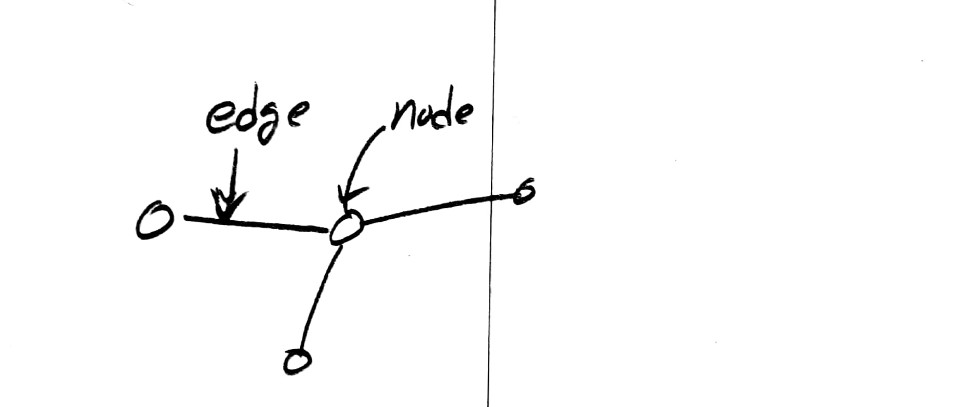 edge
node